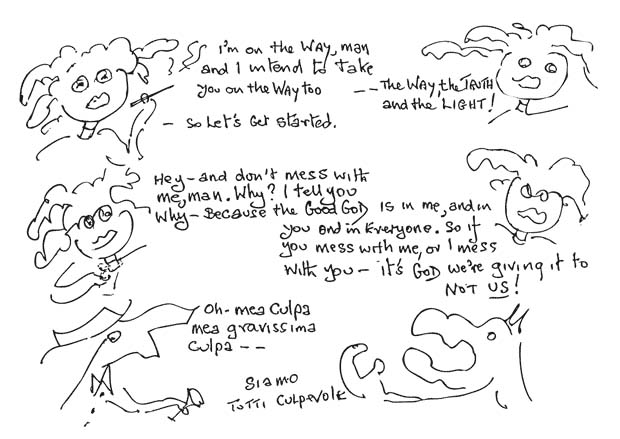 I'm on the WAY, man
and I intend to take
you on the WAY too -- The WAY, the TRUTH
and the LIGHT!
- So Let's Get started.
Hey - and don't mess with
me, man. Why? I tell you
why - Because the Good GOD is in me, and in
you and in Everyone. So if
you mess with me, or I mess
with you - it's GOD we're giving it to
NOT US!
Oh- mea culpa
mea gravissima
culpa --
Siamo
TUTTI CULPEVOLE